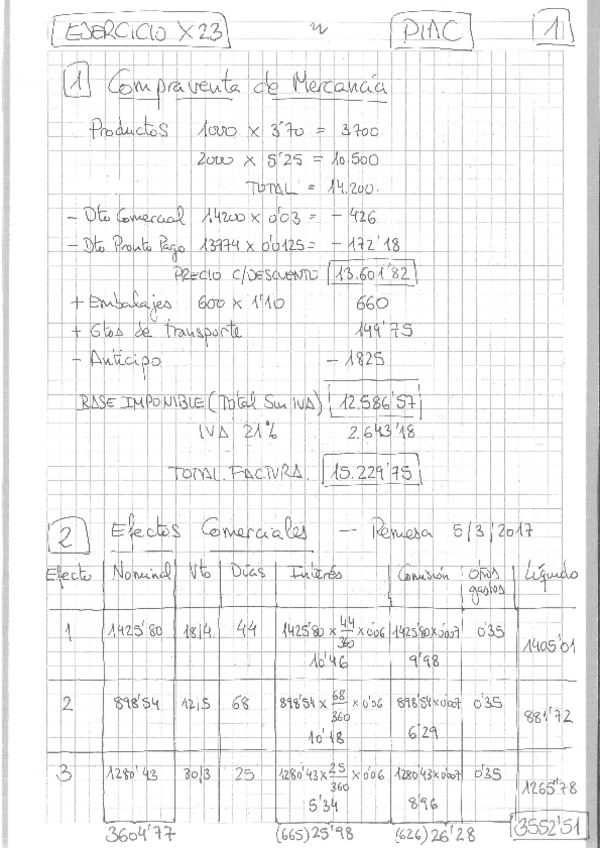 EJERCICIO X23 PIAC 1
1 Compraventa de Mercancia
Productos 1000 x 3'70 = 3700
2000 x 5'25 = 10.500
TOTAL = 14.200
- Dto Comercial 14200 x 0'03 = - 426
- Dto Pronto Pago 13774 x 0'0125 = - 172'18
PRECIO C/DESCUENTO 13.601'82
+ Embalajes 600 x 1'10 660
+ Gtos de transporte 149'75
- Anticipo - 1825
BASE IMPONIBLE (Total Sin IVA) 12.586'57
IVA 21% 2.643'18
TOTAL FACTURA 15.229'75
2 Efectos Comerciales - Remesa 5/3/2017
Efecto Nominal Vto Días Interés Comisión otros gastos Líquido
1 1425'80 18/4 44 1425'80 x 44/360 x 0'06 1425'80 x 0'007 0'35 1405'01
10'46 9'98
2 898'54 12/5 68 898'54 x 68/360 x 0'06 898'54 x 0'007 0'35 881'72
10'18 6'29
3 1280'43 30/3 25 1280'43 x 25/360 x 0'06 1280'43 x 0'007 0'35 1265'78
5'34 8'96
3604'77 (665) 25'98 (626) 26'28 3552'51